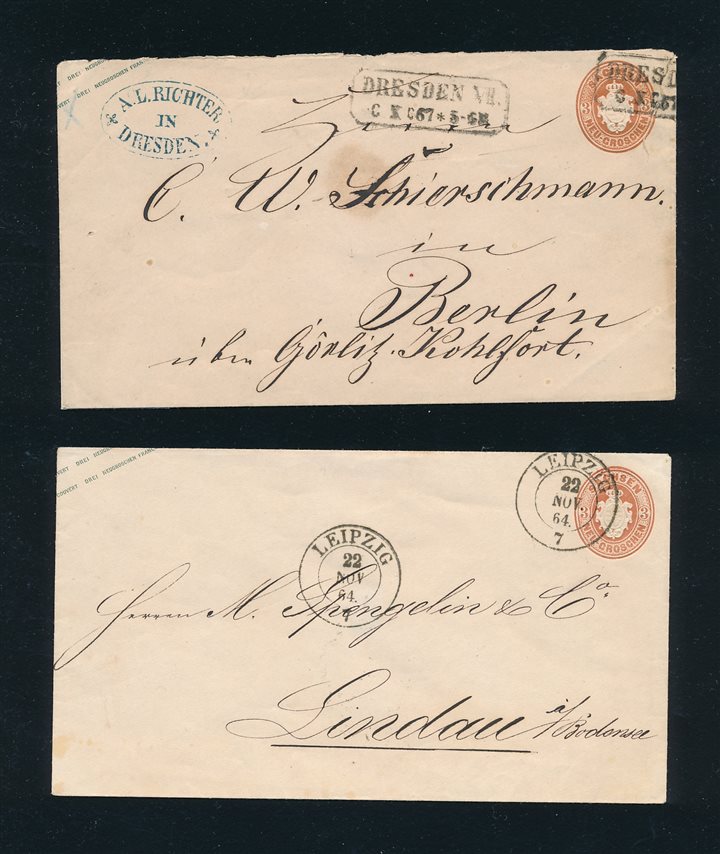 DREI NEUGROSCHEN FRANCO
A. L. RICHTER
IN
DRESDEN.
DRESDEN
C X C67 * 5-6N
DRESD
C X C67
3 NEU-GROSCHEN
C. W. Schierschmann.
in
Berlin
über Görlitz. Kohlfurt.
COUVERT DREI NEUGROSCHEN FRANCO
COUVERT DREI NEUGROSCHEN FRAN
LEIPZIG
22
NOV
64.
7
SACHSEN
3 3
NEU-GROSCHEN
LEIPZIG
22
NOV
64.
7
Herren M. Spengelin & Co.
Lindau a/Bodensee